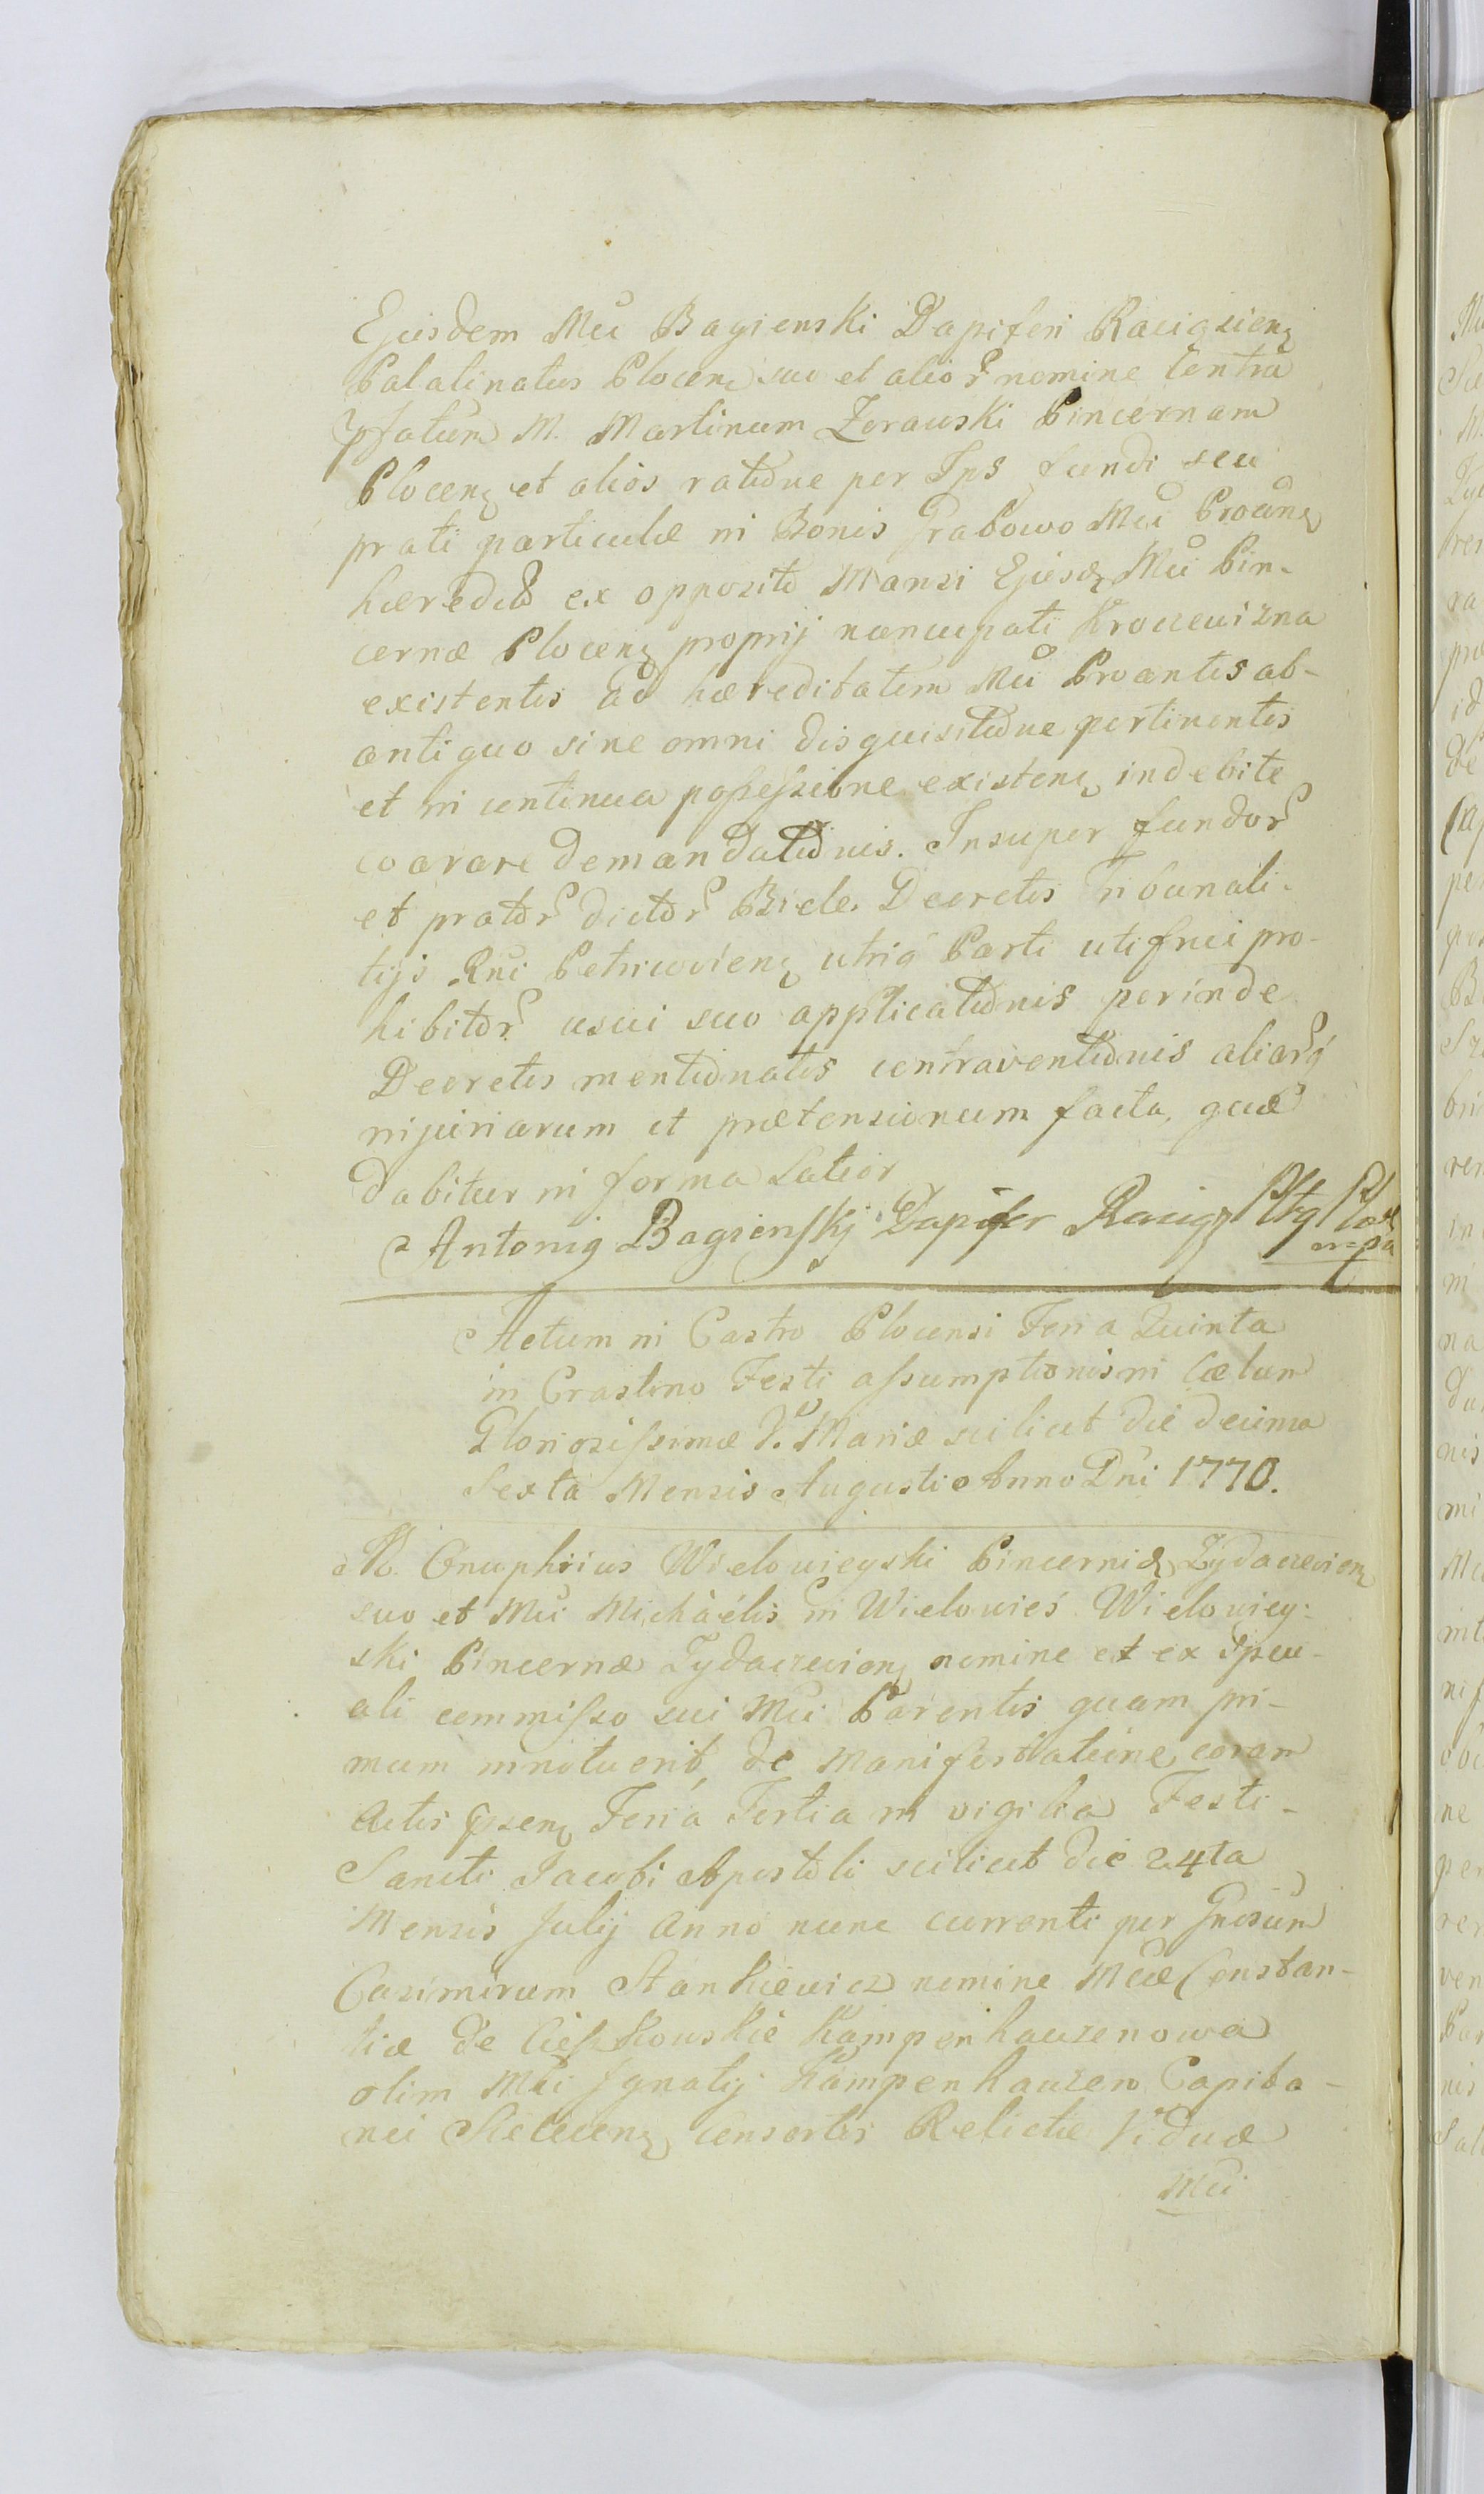 Ejusdem Mci Bagienski Dapiferi Raciązieng
Palatinatus Plocens suo et alior nomine Contra
pfatum M. Martinum Zorawski Pincernam
Ploceng et alios ratione per Ips fundi seu
prati particulæ in Bonis Grabowo Mci Proting
hæredit ex opposito Mansi Ejusd Mci Pin-
cernæ Ploceng proprij nuncupati Kroczewizna
existentis ad hæreditatem Mci Protantis ab-
antiquo sine omni disquisitione pertinentis
et in continua possessione existens indebite
coarari demandationis. Insuper fundor
et prator dictor Biele. Decretis Tribunali-
tijs Rni Petricovieng utriq Parti uti frui pro-
hibitor usui suo applicationis perinde
Decretis mentionatis contraventionis aliarq
injuriarum et prætensionum facta, quæ
dabitur in forma Latior
Antonig Bagienskj Dapifer Raciąz Wg Płock
m=pa
Actum in Castro Plocensi Feria Quinta
in Crastino Festi assumptionis in Cælum
Gloriosissimæ V. Mariæ scilicet die decima
Sexta Mensis Augusti Anno Dni 1770.
M. Onuphrius Wielowieyski Pincernid Zydaczovieng
suo et Mci Michaélis in Wielowieś Wielowiey-
ski Pincernæ Zydaczovieng nomine et ex speci-
ali commisso sui Mci Parentis quam pri-
mum innotuerit, de Manifestatione coram
Actis psens Feria Tertia in vigilia Festi
Sancti Jacobi Apostoli scilicet die 24ta
Mensis Julij Anno nunc currenti per Gnosum
Casimirum Stankiewicz nomine Mcæ Constan-
tiæ de Cieszkowskie Kampenhauzenowa
olim Mci Ignatij Kampenhauzen Capita-
nei Scieceng consortis Relictæ Viduæ
Mci